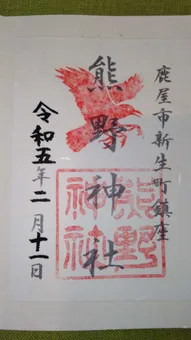 鹿屋市新生町鎮座
熊野神社
熊野神社
令和五年二月十一日